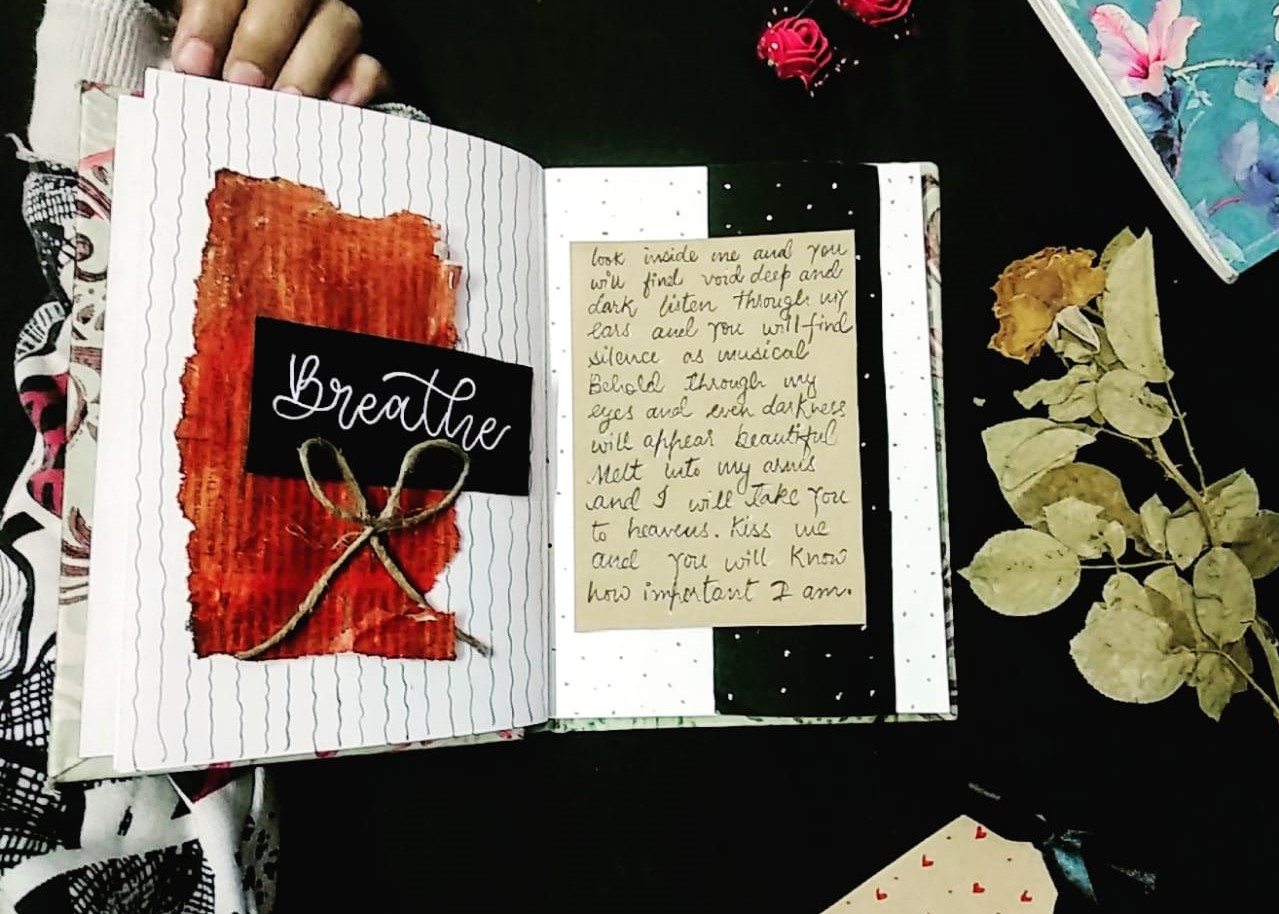 Breathe
look inside me and you
will find void deep and
dark listen through my
ears and you will find
silence as musical
Behold through my
eyes and even darkness
will appear beautiful
Melt into my arms
and I will take you
to heavens. Kiss me
and you will know
how important I am.